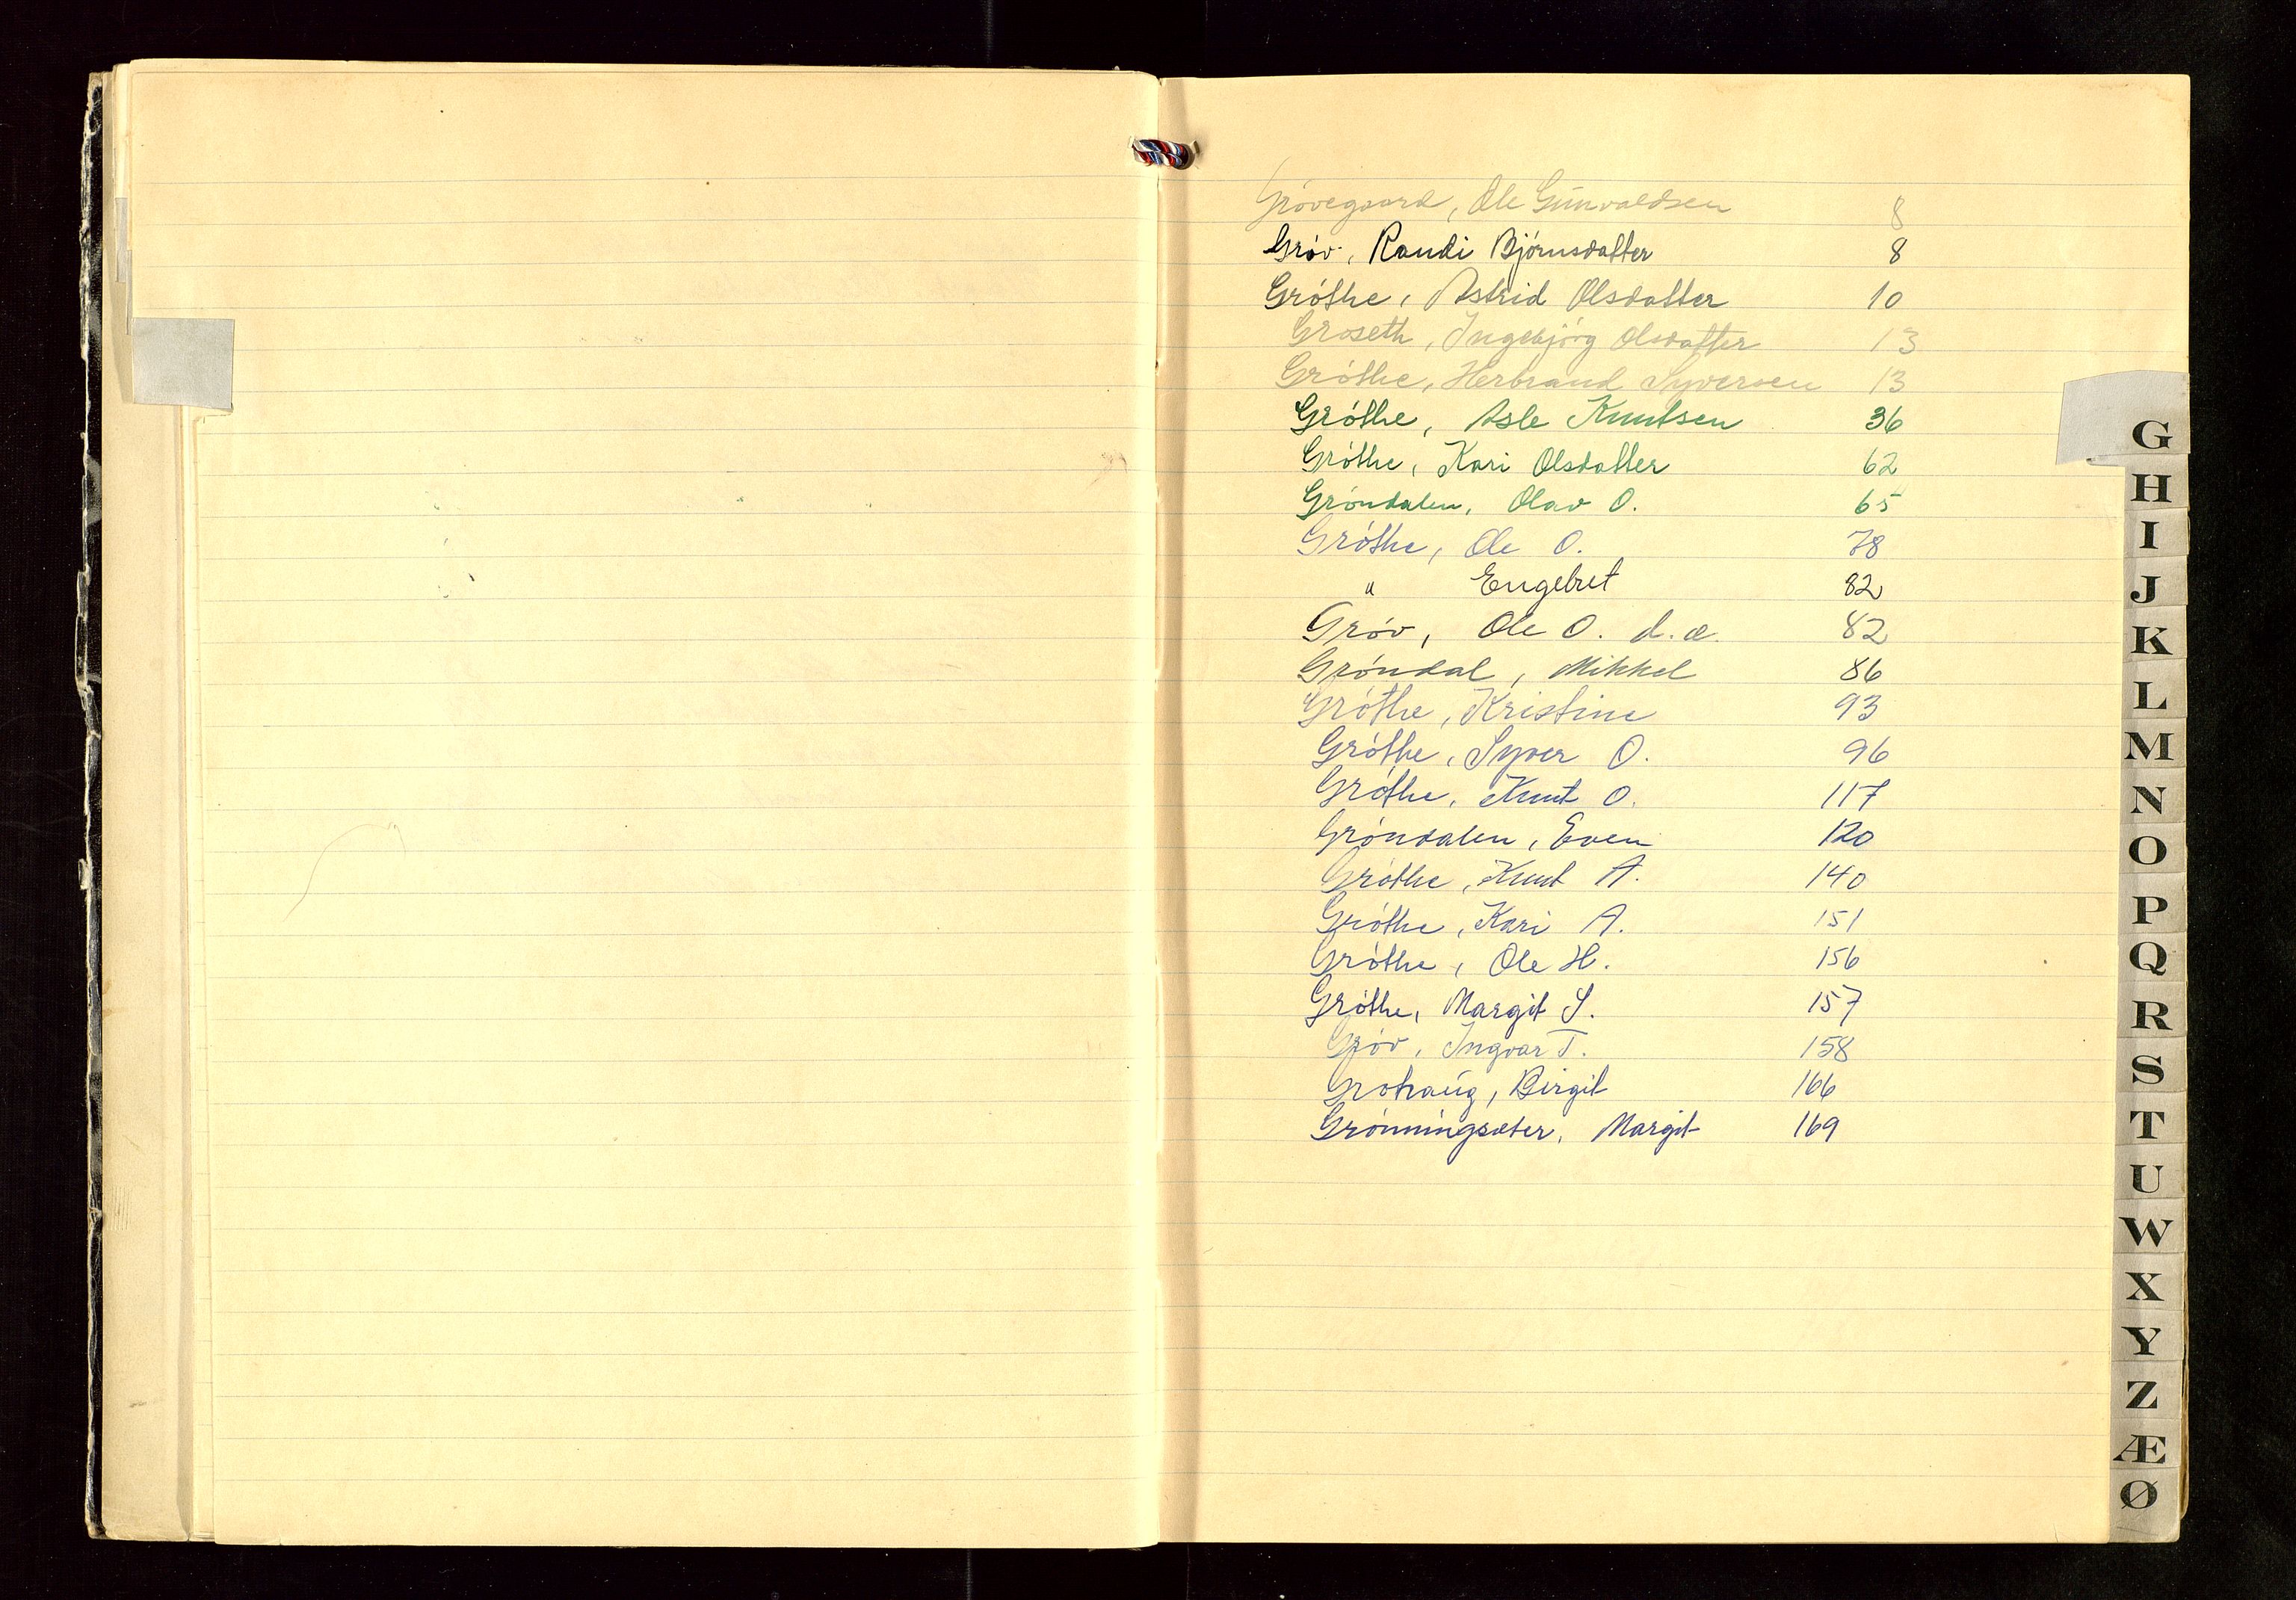 Grövegaard, Ole Gunvaldsen 8
Gröv, Randi Björnsdatter 8
Gröthe, Astrid Olsdatter 10
Groseth, Ingebjörg Olsdatter 13
Gröthe, Herbrand Syversen 13
Gröthe, Asle Knutsen 36
Gröthe, Kari Olsdatter 62
Gröndalen, Olav O. 65
Gröthe, Ole O. 78
" Engebret 82
Gröv, Ole O. d.e. 82
Gröndal, Mikkel 86
Gröthe, Kristine 93
Gröthe, Syver O. 96
Gröthe, Knut O. 117
Gröndalen, Even 120
Gröthe, Knut A. 140
Gröthe, Kari A. 151
Gröthe, Ole H. 156
Gröthe, Margit S. 157
Gröv, Ingvar T. 158
Grohaug, Birgit 166
Grönningsæter, Margit 169
G
H
I
J
K
L
M
N
O
P
Q
R
S
T
U
W
X
Y
Z
Æ
Ø